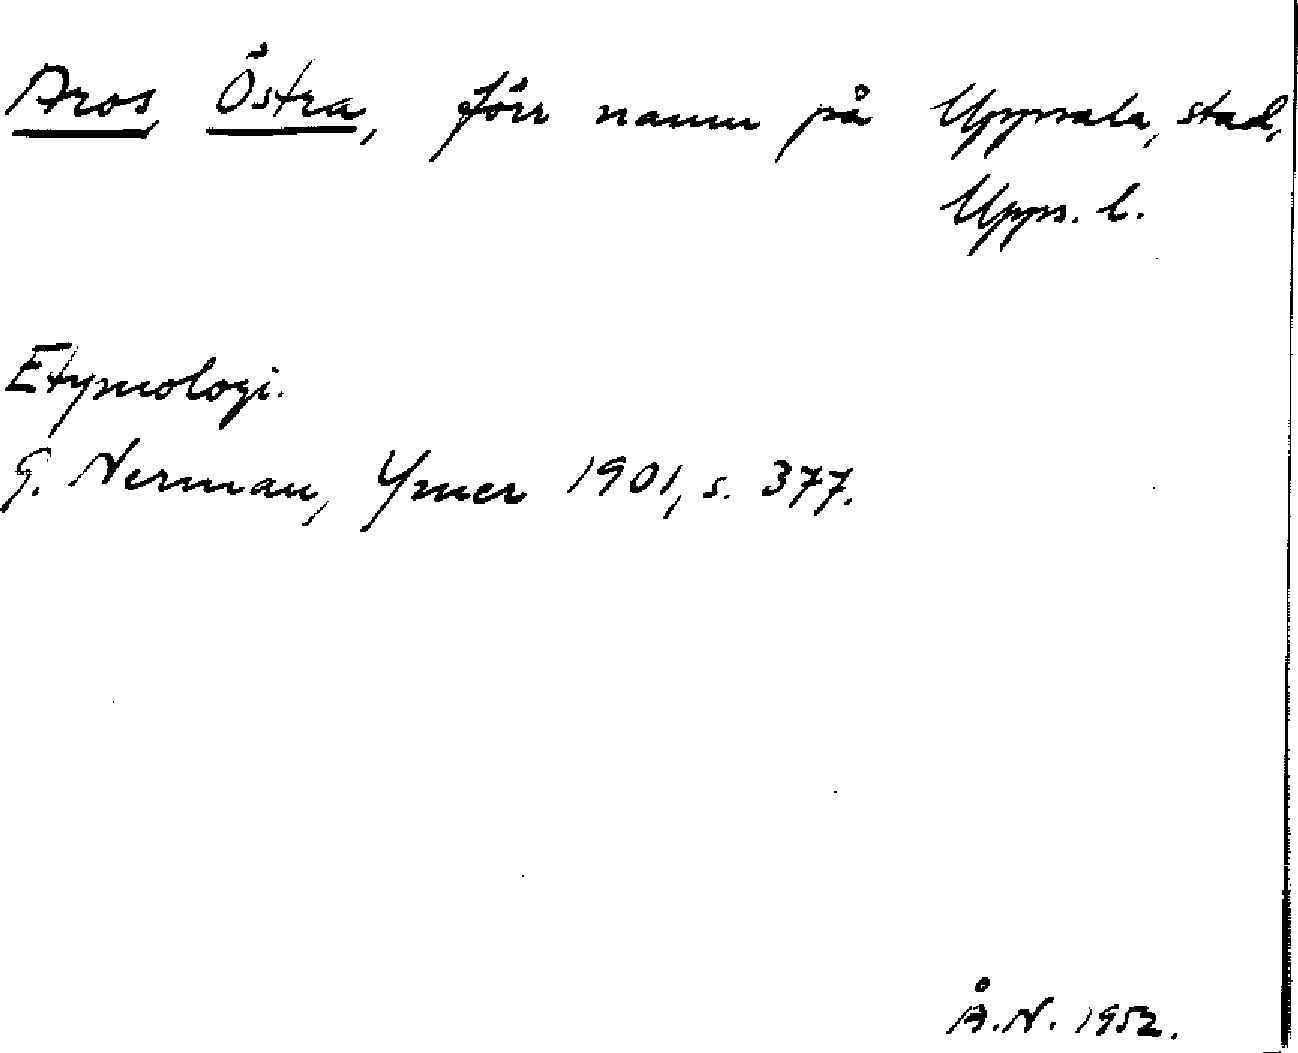 Aros, Östra, förr namn på Uppsala, stad,
Upps. l.
Etymologi.
G. Nerman, Ymer 1901, s. 377.
Å.N. 1952.